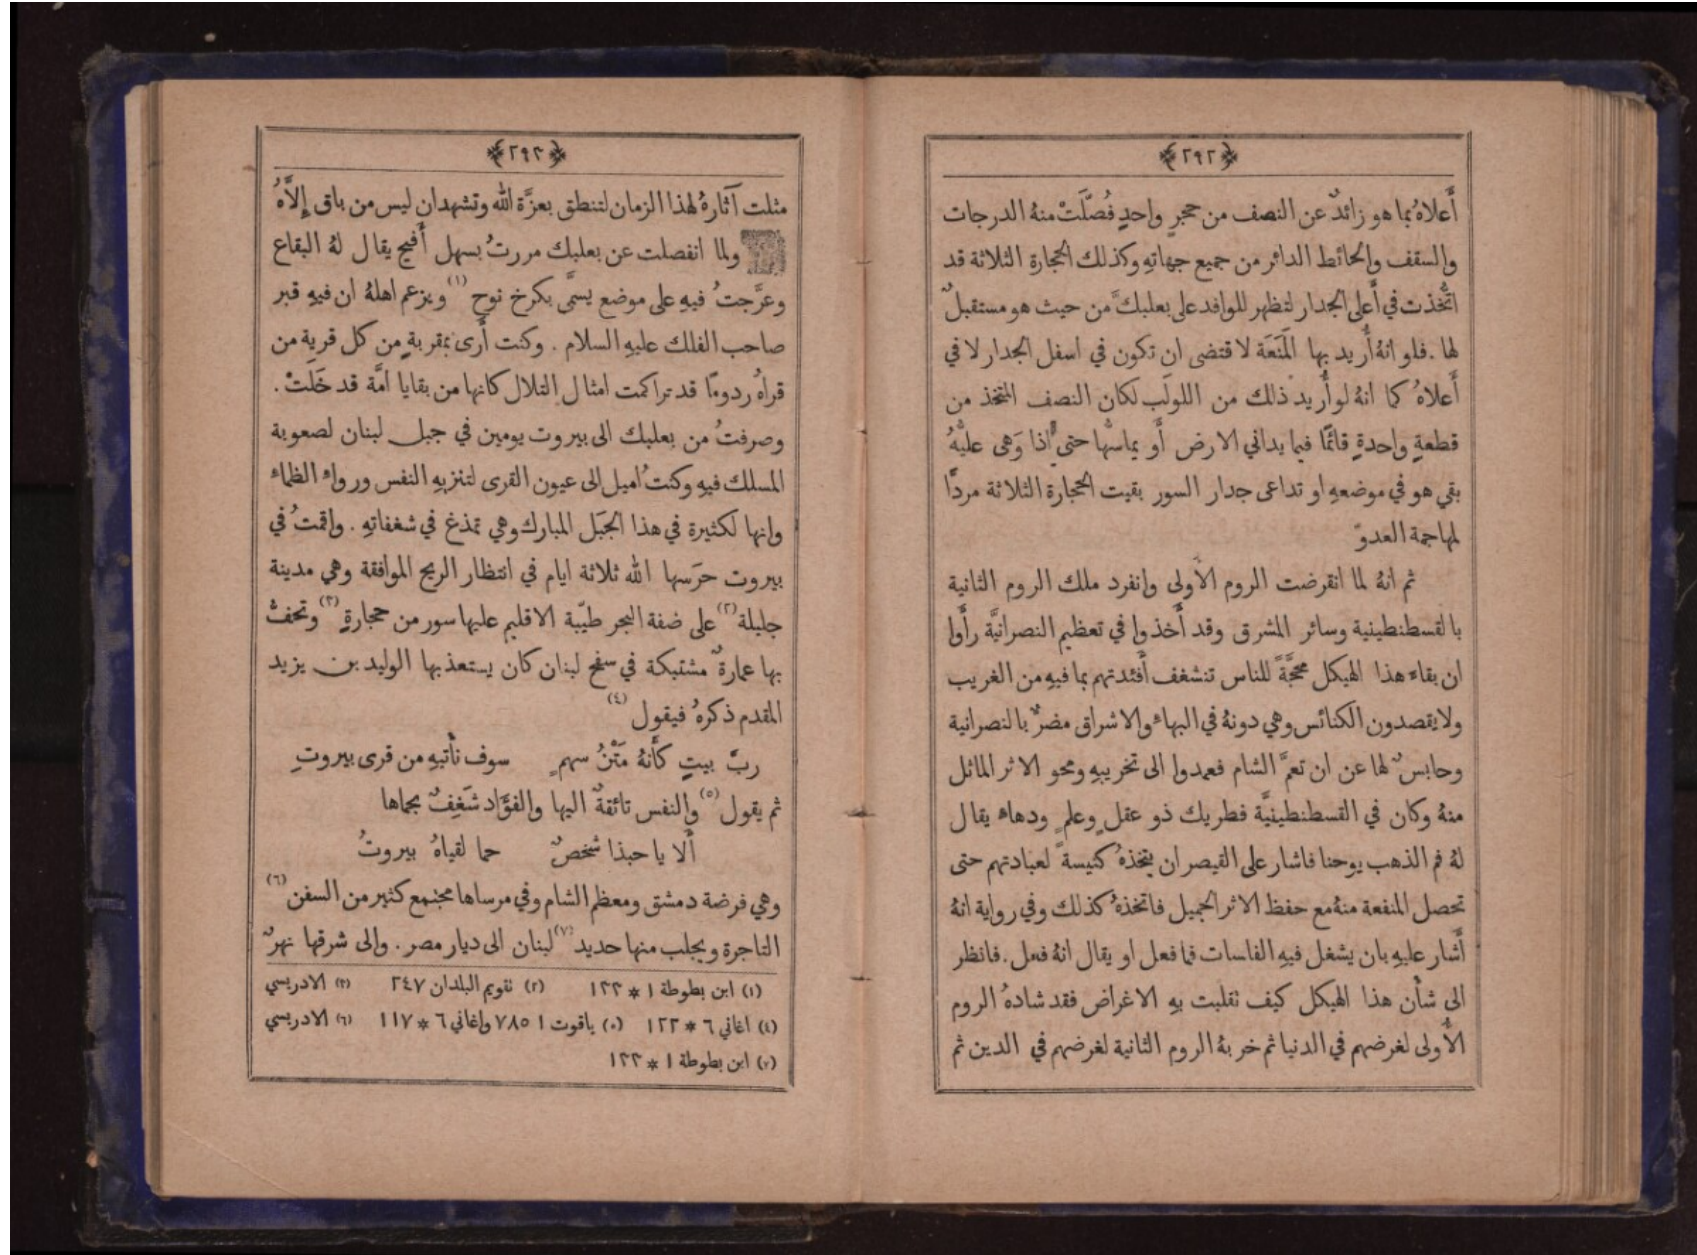 ﴿٢٩٢﴾
أَعلاهُ بما هو زائدٌ عن النصف من حجرٍ واحدٍ فُصِّلَتْ منهُ الدرجات
والسقف والحائط الدائر من جميع جهاتهِ وكذلك الحجارة الثلاثة قد
اتُّخذت في أَعلى الجدار لتظهر للوافد على بعلبكَّ من حيث هو مستقبلٌ
لها . فلو انهُ أُريد بها المَنَعَة لاقتضى ان تكون في اسفل الجدار لا في
أَعلاهُ كما انهُ لو أُريد ذلك من اللولَب لكان النصف المتخذ من
قطعةٍ واحدةٍ قائمًا فيما يداني الارض أَو يماسُّها حتى إِذا وَهى عليُّهُ
بقي هو في موضعهِ او تداعى جدار السور بقيت الحجارة الثلاثة مردًّا
لمهاجمة العدوّ
ثم انهُ لما انقرضت الروم الأولى وانفرد ملك الروم الثانية
بالقسطنطينية وسائر المشرق وقد أَخذوا في تعظيم النصرانيَّة رأَوا
ان بقاء هذا الهيكل محجَّةً للناس تنشغف أَفئدتهم بما فيهِ من الغريب
ولا يقصدون الكنائس وهي دونهُ في البهاء والاشراق مضرٌّ بالنصرانية
وحابسٌ لها عن ان تعمَّ الشام فعمدوا الى تخريبهِ ومحو الاثر الماثل
منهُ وكان في القسطنطينيَّة فطريك ذو عقلٍ وعلمٍ ودهاء يقال
لهُ فم الذهب يوحنا فاشار على القيصر ان يتخذهُ كنيسةً لعبادتهم حتى
تحصل المنفعة منهُ مع حفظ الاثر الجميل فاتخذهُ كذلك وفي رواية انهُ
أَشار عليهِ بان يشغل فيهِ الفاسات فما فعل او يقال انهُ فعل . فانظر
الى شأْن هذا الهيكل كيف تقلبت بهِ الاغراض فقد شادهُ الروم
الأُولى لغرضهم في الدنيا ثم خربهُ الروم الثانية لغرضهم في الدين ثم
﴿٢٩٣﴾
مثلت آثارهُ لهذا الزمان لتنطق بعزَّة الله وتشهد ان ليس من باق إِلاَّهُ
ولما انفصلت عن بعلبك مررتُ بسهل أَفيح يقال لهُ البقاع
وعرَّجتُ فيهِ على موضع يسمَّى بكرخ نوح (١) ويزعم اهلهُ ان فيهِ قبر
صاحب الفلك عليهِ السلام . وكنت أَرى بمقربةٍ من كل قرية من
قراهُ ردومًا قد تراكمت امثال التلال كانها من بقايا امَّة قد خَلَتْ .
وصرفتُ من بعلبك الى بيروت يومين في جبل لبنان لصعوبة
المسلك فيهِ وكنتُ اميل الى عيون القرى لتنزيهِ النفس ورواء الظماء
وانها لكثيرة في هذا الجَبَل المبارك وهي تمذغ في شغفاتهِ . واقمتُ في
بيروت حرَسها الله ثلاثة ايام في انتظار الريح الموافقة وهي مدينة
جليلة (٢) على ضفة البحر طيّبة الاقليم عليها سور من حجارةٍ (٣) وتحفُّ
بها عمارةٌ مشتبكة في سفح لبنان كان يستعذبها الوليد بن يزيد
المقدم ذكرهُ فيقول (٤)
ربَّ بيتٍ كأَنهُ مَتْنُ سهمٍ سوف نأْتيهِ من قرى بيروتِ
ثم يقول (٥) والنفس تائقةٌ اليها والفؤَاد شَغِفٌ بحماها
أَلا يا حبذا شخصٌ حما لقياهُ بيروتُ
وهي فرضة دمشق ومعظم الشام وفي مرساها مجتمع كثير من السفن (٦)
التاجرة ويجلب منها حديد (٧) لبنان الى ديار مصر . والى شرقها نهرٌ
(١) ابن بطوطة ١ * ١٣٣ (٢) تقويم البلدان ٢٤٧ (٣) الادريسي
(٤) اغاني ٦ * ١٢٣ (٥) ياقوت ١ ٧٨٥ واغاني ٦ * ١١٧ (٦) الادريسي
(٧) ابن بطوطة ١ * ١٣٣